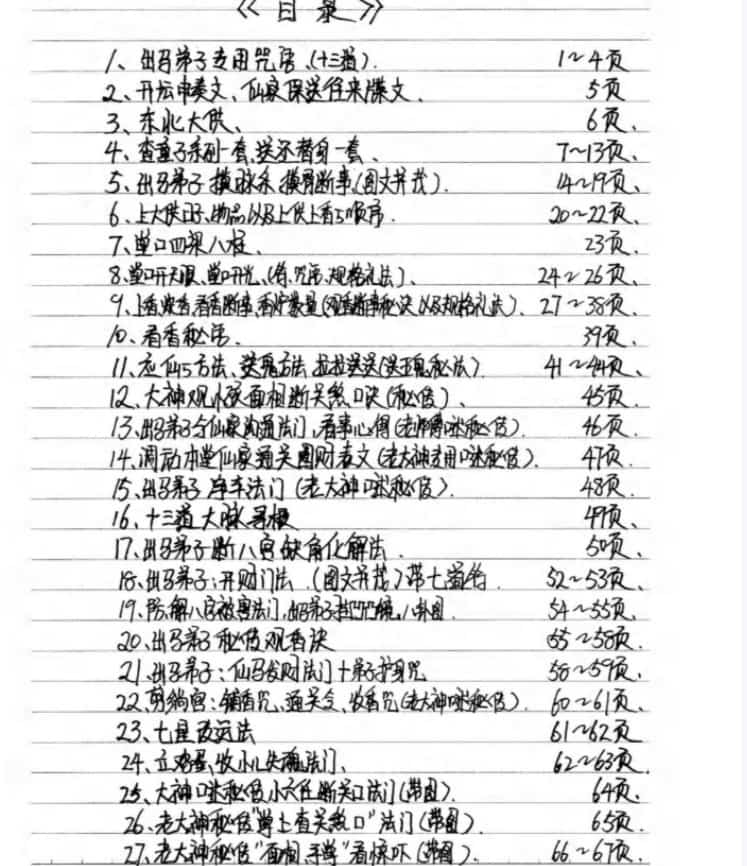 《目录》
1、出马弟子专用咒语、(十三道). 1~4页
2、开坛申奏文、仙家保送往来牒文、 5页
3、东北大供、 6页、
4、查童子亲孙一套,送还替身一套、 7~13页、
5、出马弟子摸脉条,摸骨断事(图文并茂). 14~19页、
6、上大供日子、物品以及上供上香与顺序. 20~22页、
7、堂口四梁八柱、 23页.
8、堂口开天眼、堂口开光、(符.咒语.规格礼法)、 24~26页、
9、上香 看香断事 以及规格礼法). 27~38页、
10、看香秘语. 39页、
11、应仙与方法、送鬼方法 41~44页、
12、大神观小家面相断关煞口诀(秘传)、 45页
13、出马弟子与仙家沟通法门、看事心得(老师傅口述秘传). 46页
14、调动本堂仙家通关圆财表文(老大神专用口述秘传). 47页
15、出马弟子 法门(老大神口述秘传). 48页
16、十三道大脉寻根 49页、
17、出马弟子断八宫缺角化解法. 50页、
18、出马弟子:开财门法.(图文并茂)带七道符. 52~53页、
19、防解八宫被害法门,出马弟子 八卦图. 54~55页、
20、出马弟子秘传观香诀 55~58页.
21、出马弟子:仙马发财法门+弟子护身咒 58~59页、
22、 铺香咒、通关令、收香咒(老大神口述秘传). 60~61页、
23、七星改运法 61~62页
24、立鸡蛋,收小儿失魂法门、 62~63页.
25、大神口述秘传小六任断关口法门(带图). 64页、
26、老大神秘传"掌上查关煞口"法门(带图). 65页.
27、老大神秘传"面相、手掌"看 (带图). 66~67页、